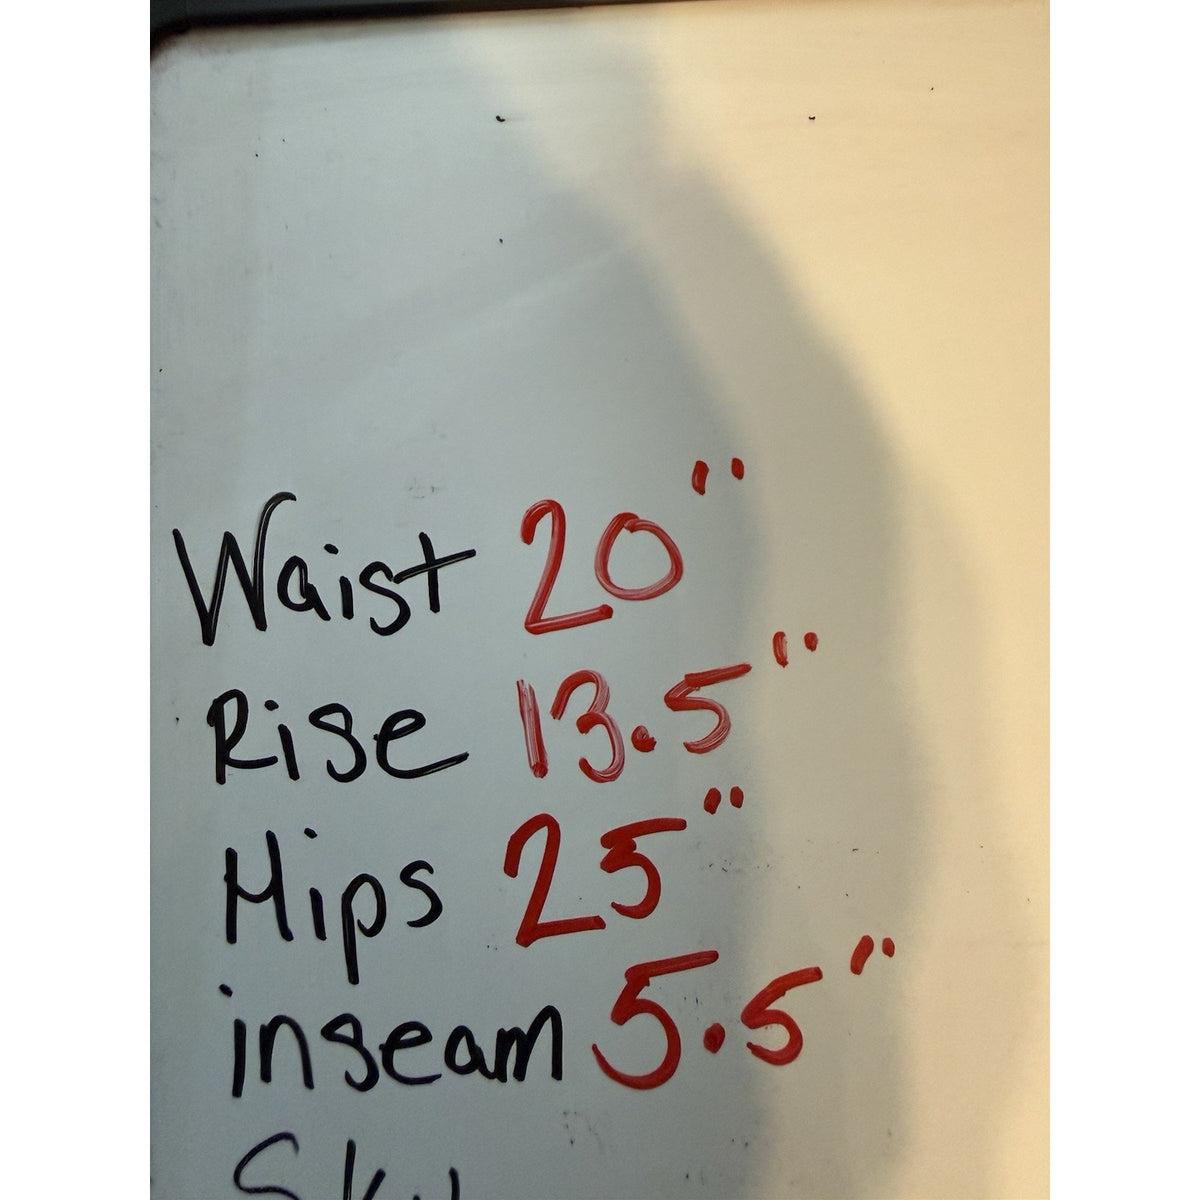 Waist 20"
Rise 13.5"
Hips 25"
inseam 5.5"